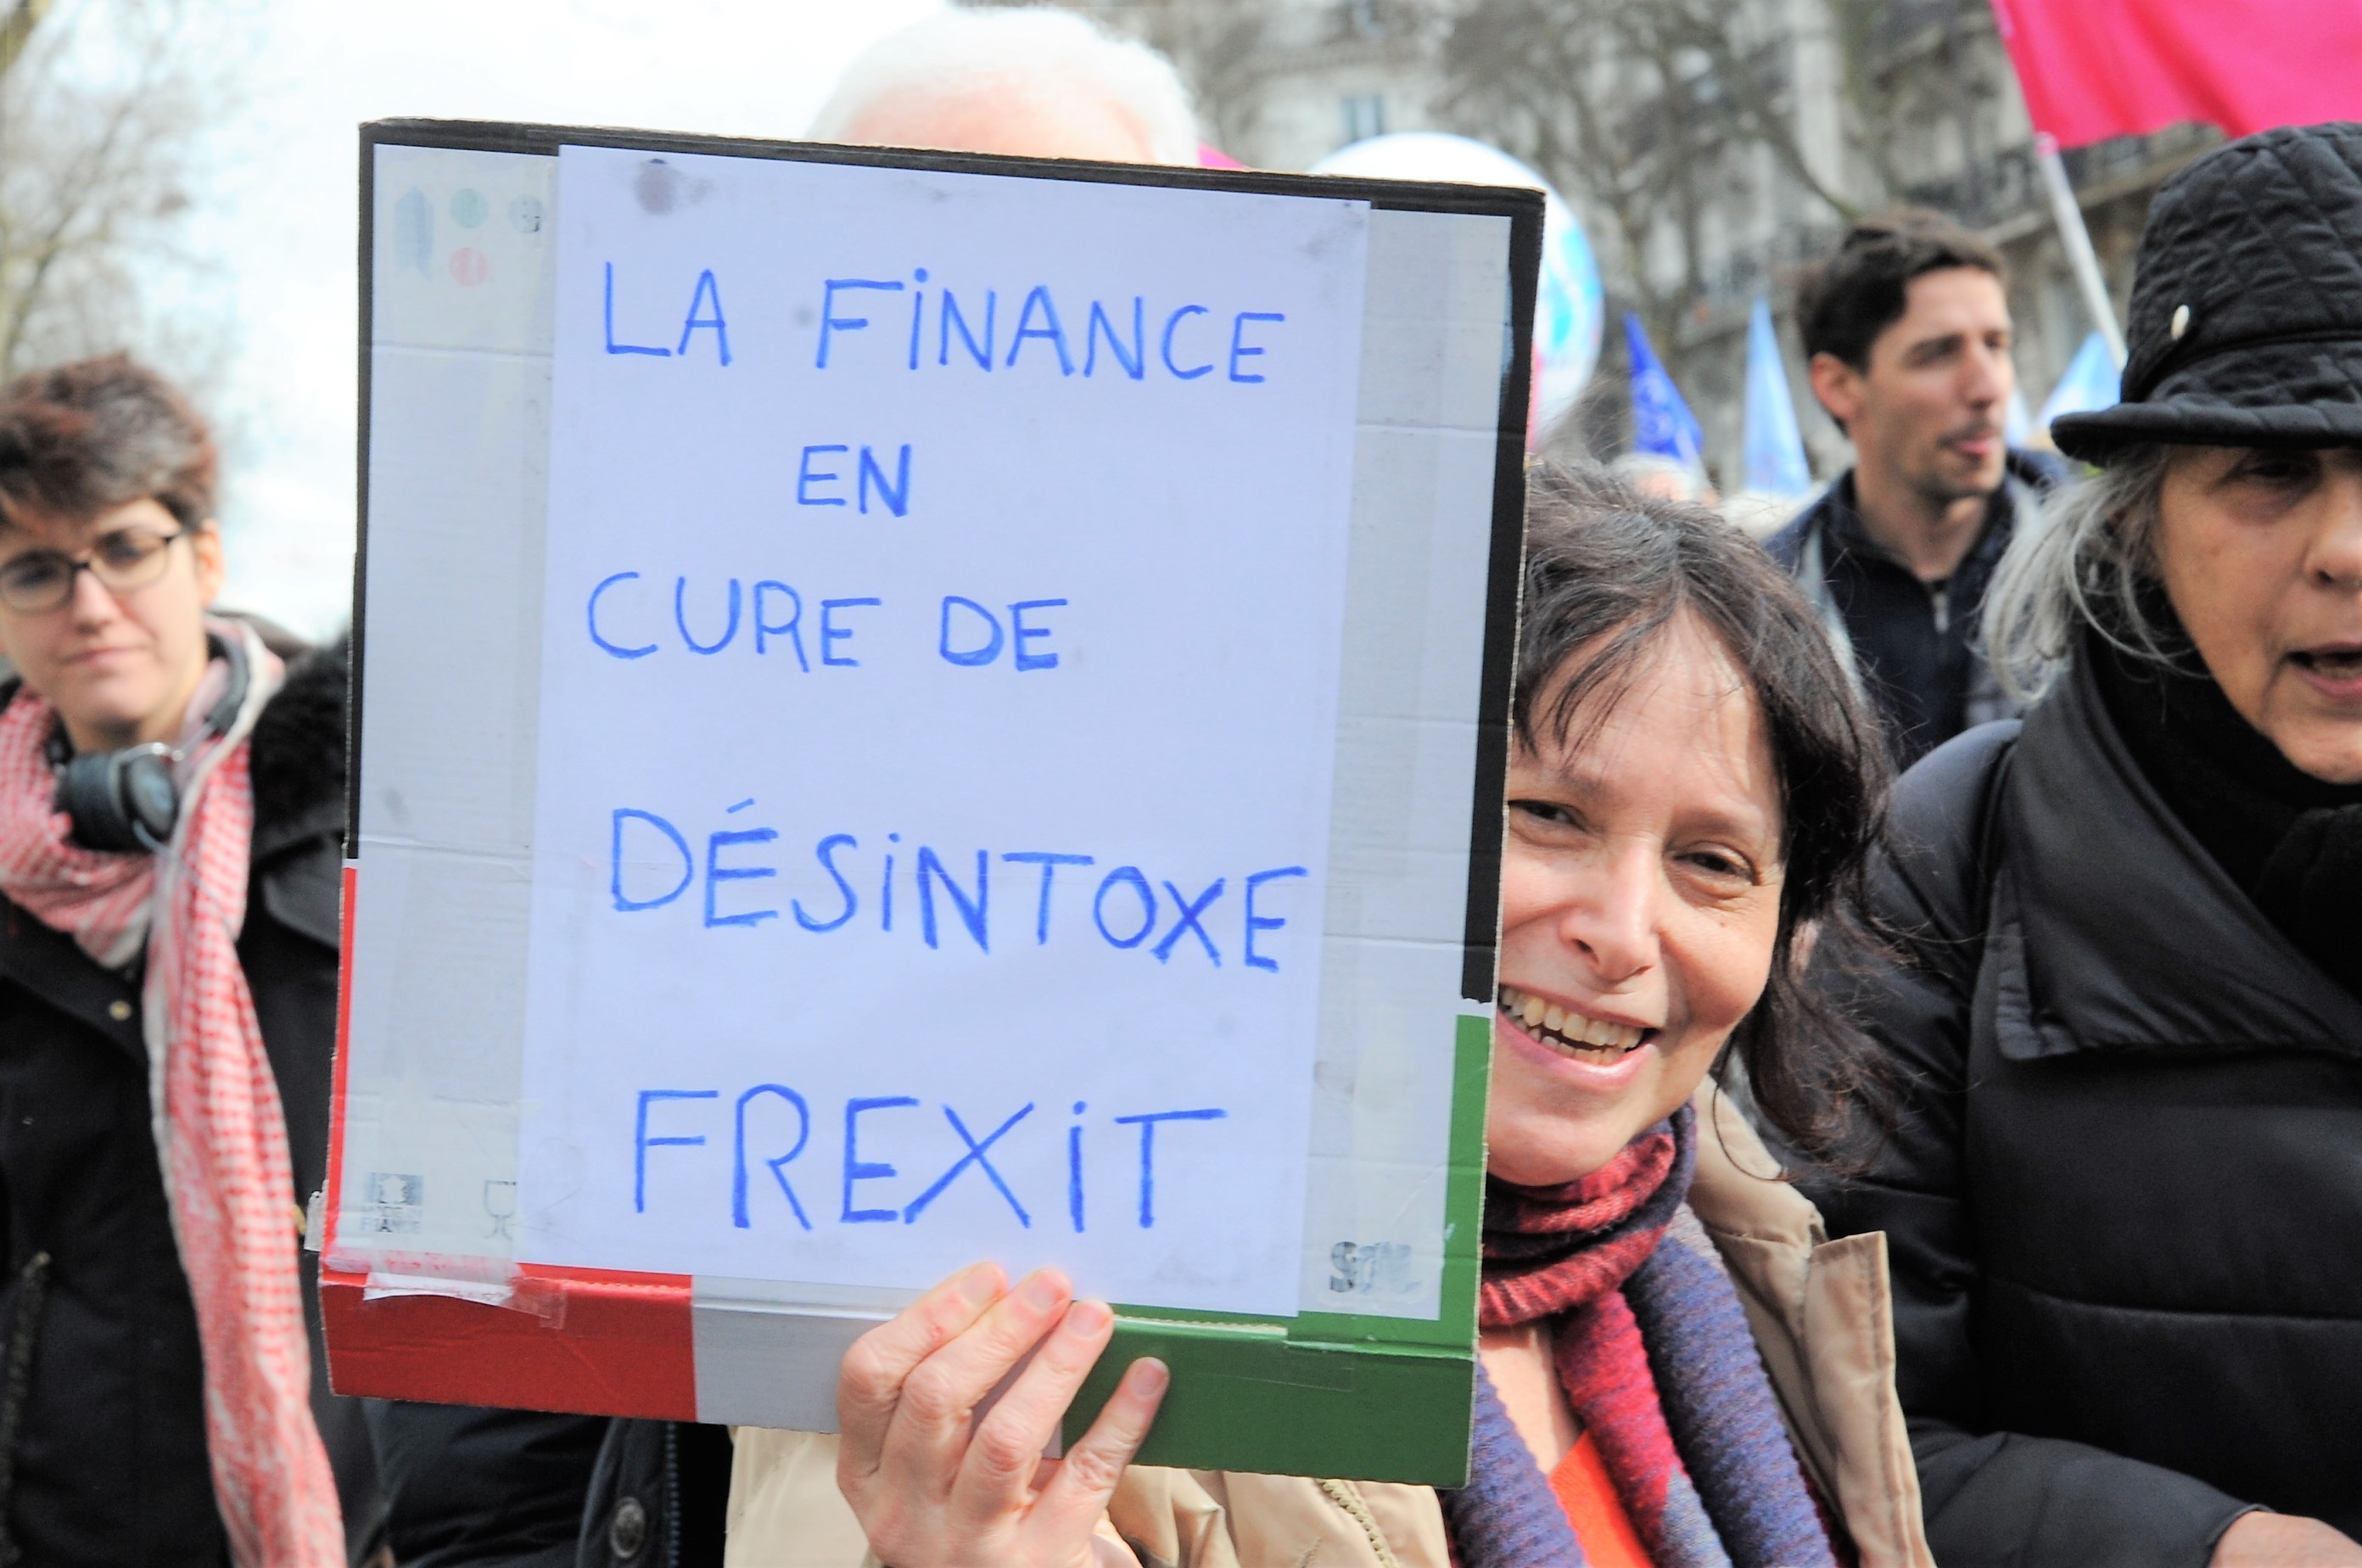 LA FiNANCE
EN
CURE DE
DÉSiNTOXE
FREXiT